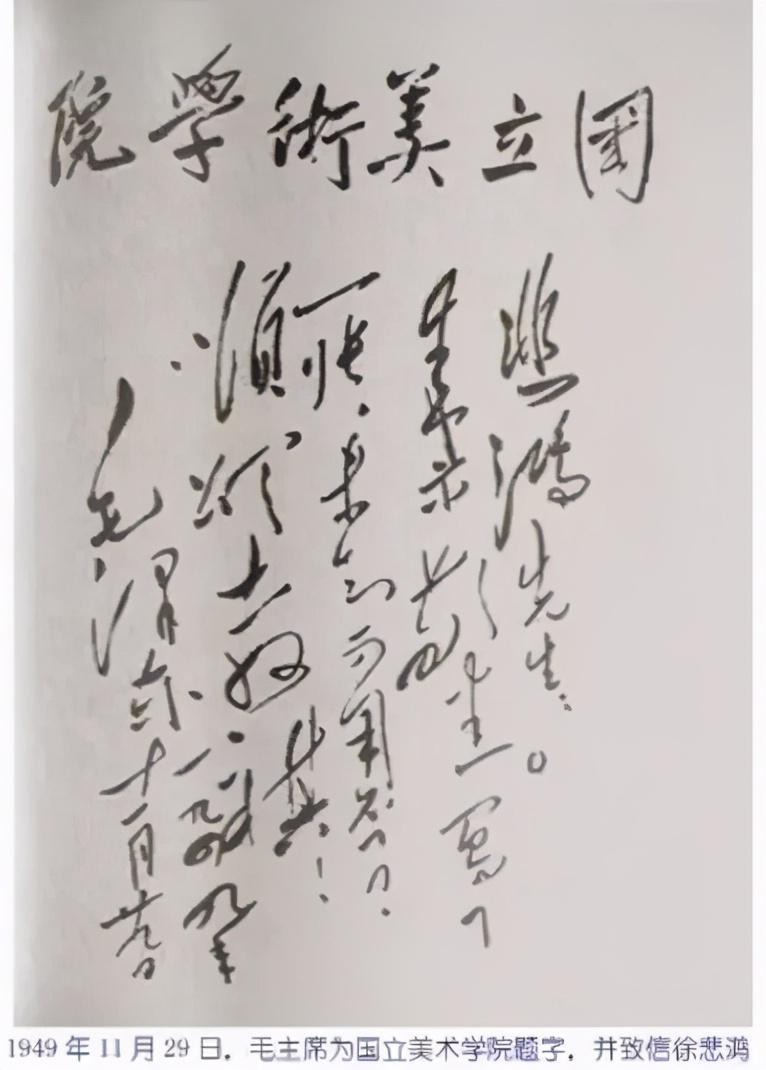 國立美術學院
悲鴻先生：
來示敬悉。寫了
一張，未知可用否？
順頌
教祺！
毛澤东
一九四九年
十一月廿九日
1949年11月29日，毛主席为国立美术学院题字，并致信徐悲鸿